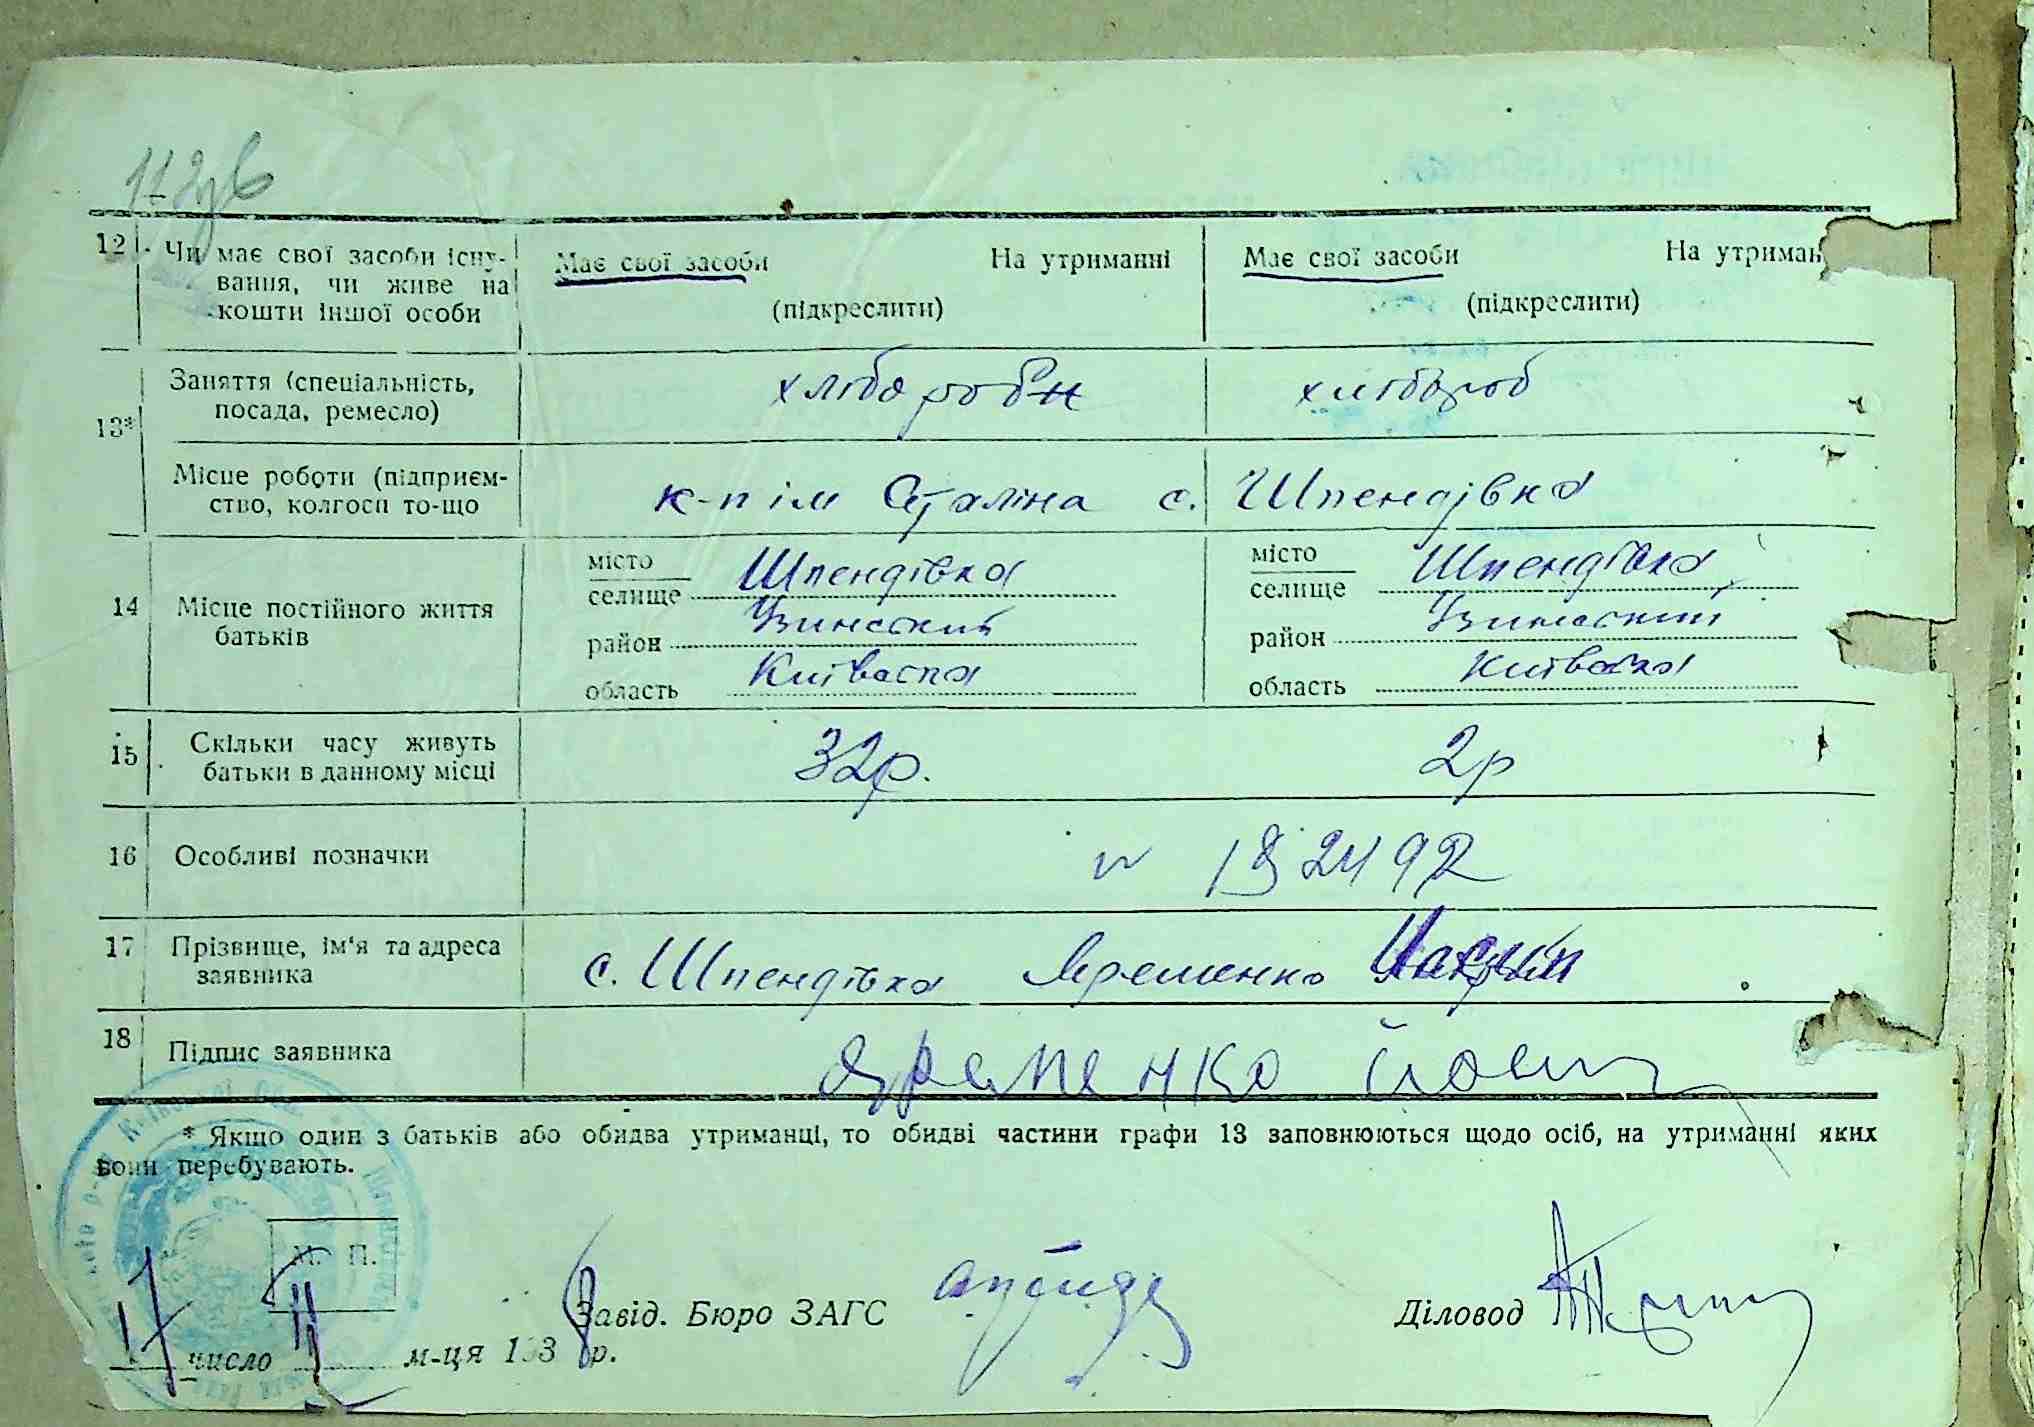 12 Чи має свої засоби існу- Має свої засоби На утриманні Має свої засоби На утриман
вання, чи живе на
кошти іншої особи (підкреслити) (підкреслити)
13* Заняття (спеціальність, хлібороб хлібороб
посада, ремесло)
Місце роботи (підприєм- к-п ім Сталіна с. Шпендівка
ство, колгосп то-що
14 Місце постійного життя місто Шпендівка місто Шпендівка
батьків селище селище
район Узинський район Узинський
область Київська область Київська
15 Скільки часу живуть 32р. 2р
батьки в данному місці
16 Особливі позначки
17 Прізвище, ім'я та адреса с. Шпендівка Яременко
заявника
18 Підпис заявника Яременко
* Якщо один з батьків або обидва утриманці, то обидві частини графи 13 заповнюються щодо осіб, на утриманні яких
вони перебувають.
М. П.
Завід. Бюро ЗАГС Діловод
17 число м-ця 1938 р.